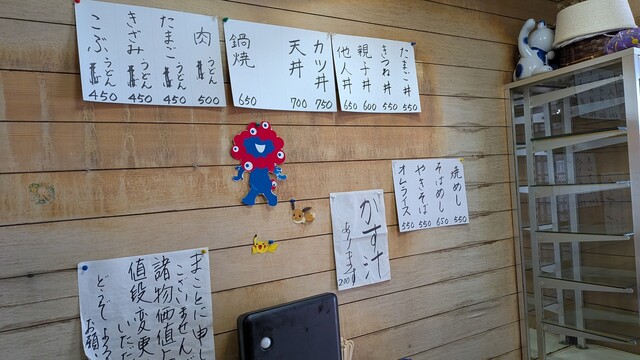 肉うどん 500
たまごうどん 450
きざみうどん 450
こぶうどん 450
カツ丼 750
天丼 700
鍋焼 650
たまご丼 550
きつね丼 550
親子丼 600
他人丼 650
焼めし 550
そばめし 650
やきそば 550
オムライス 550
かす汁
あります
200
まことに申し
ございません
諸物価値
値段変更
いただ
どうぞよろ
お願